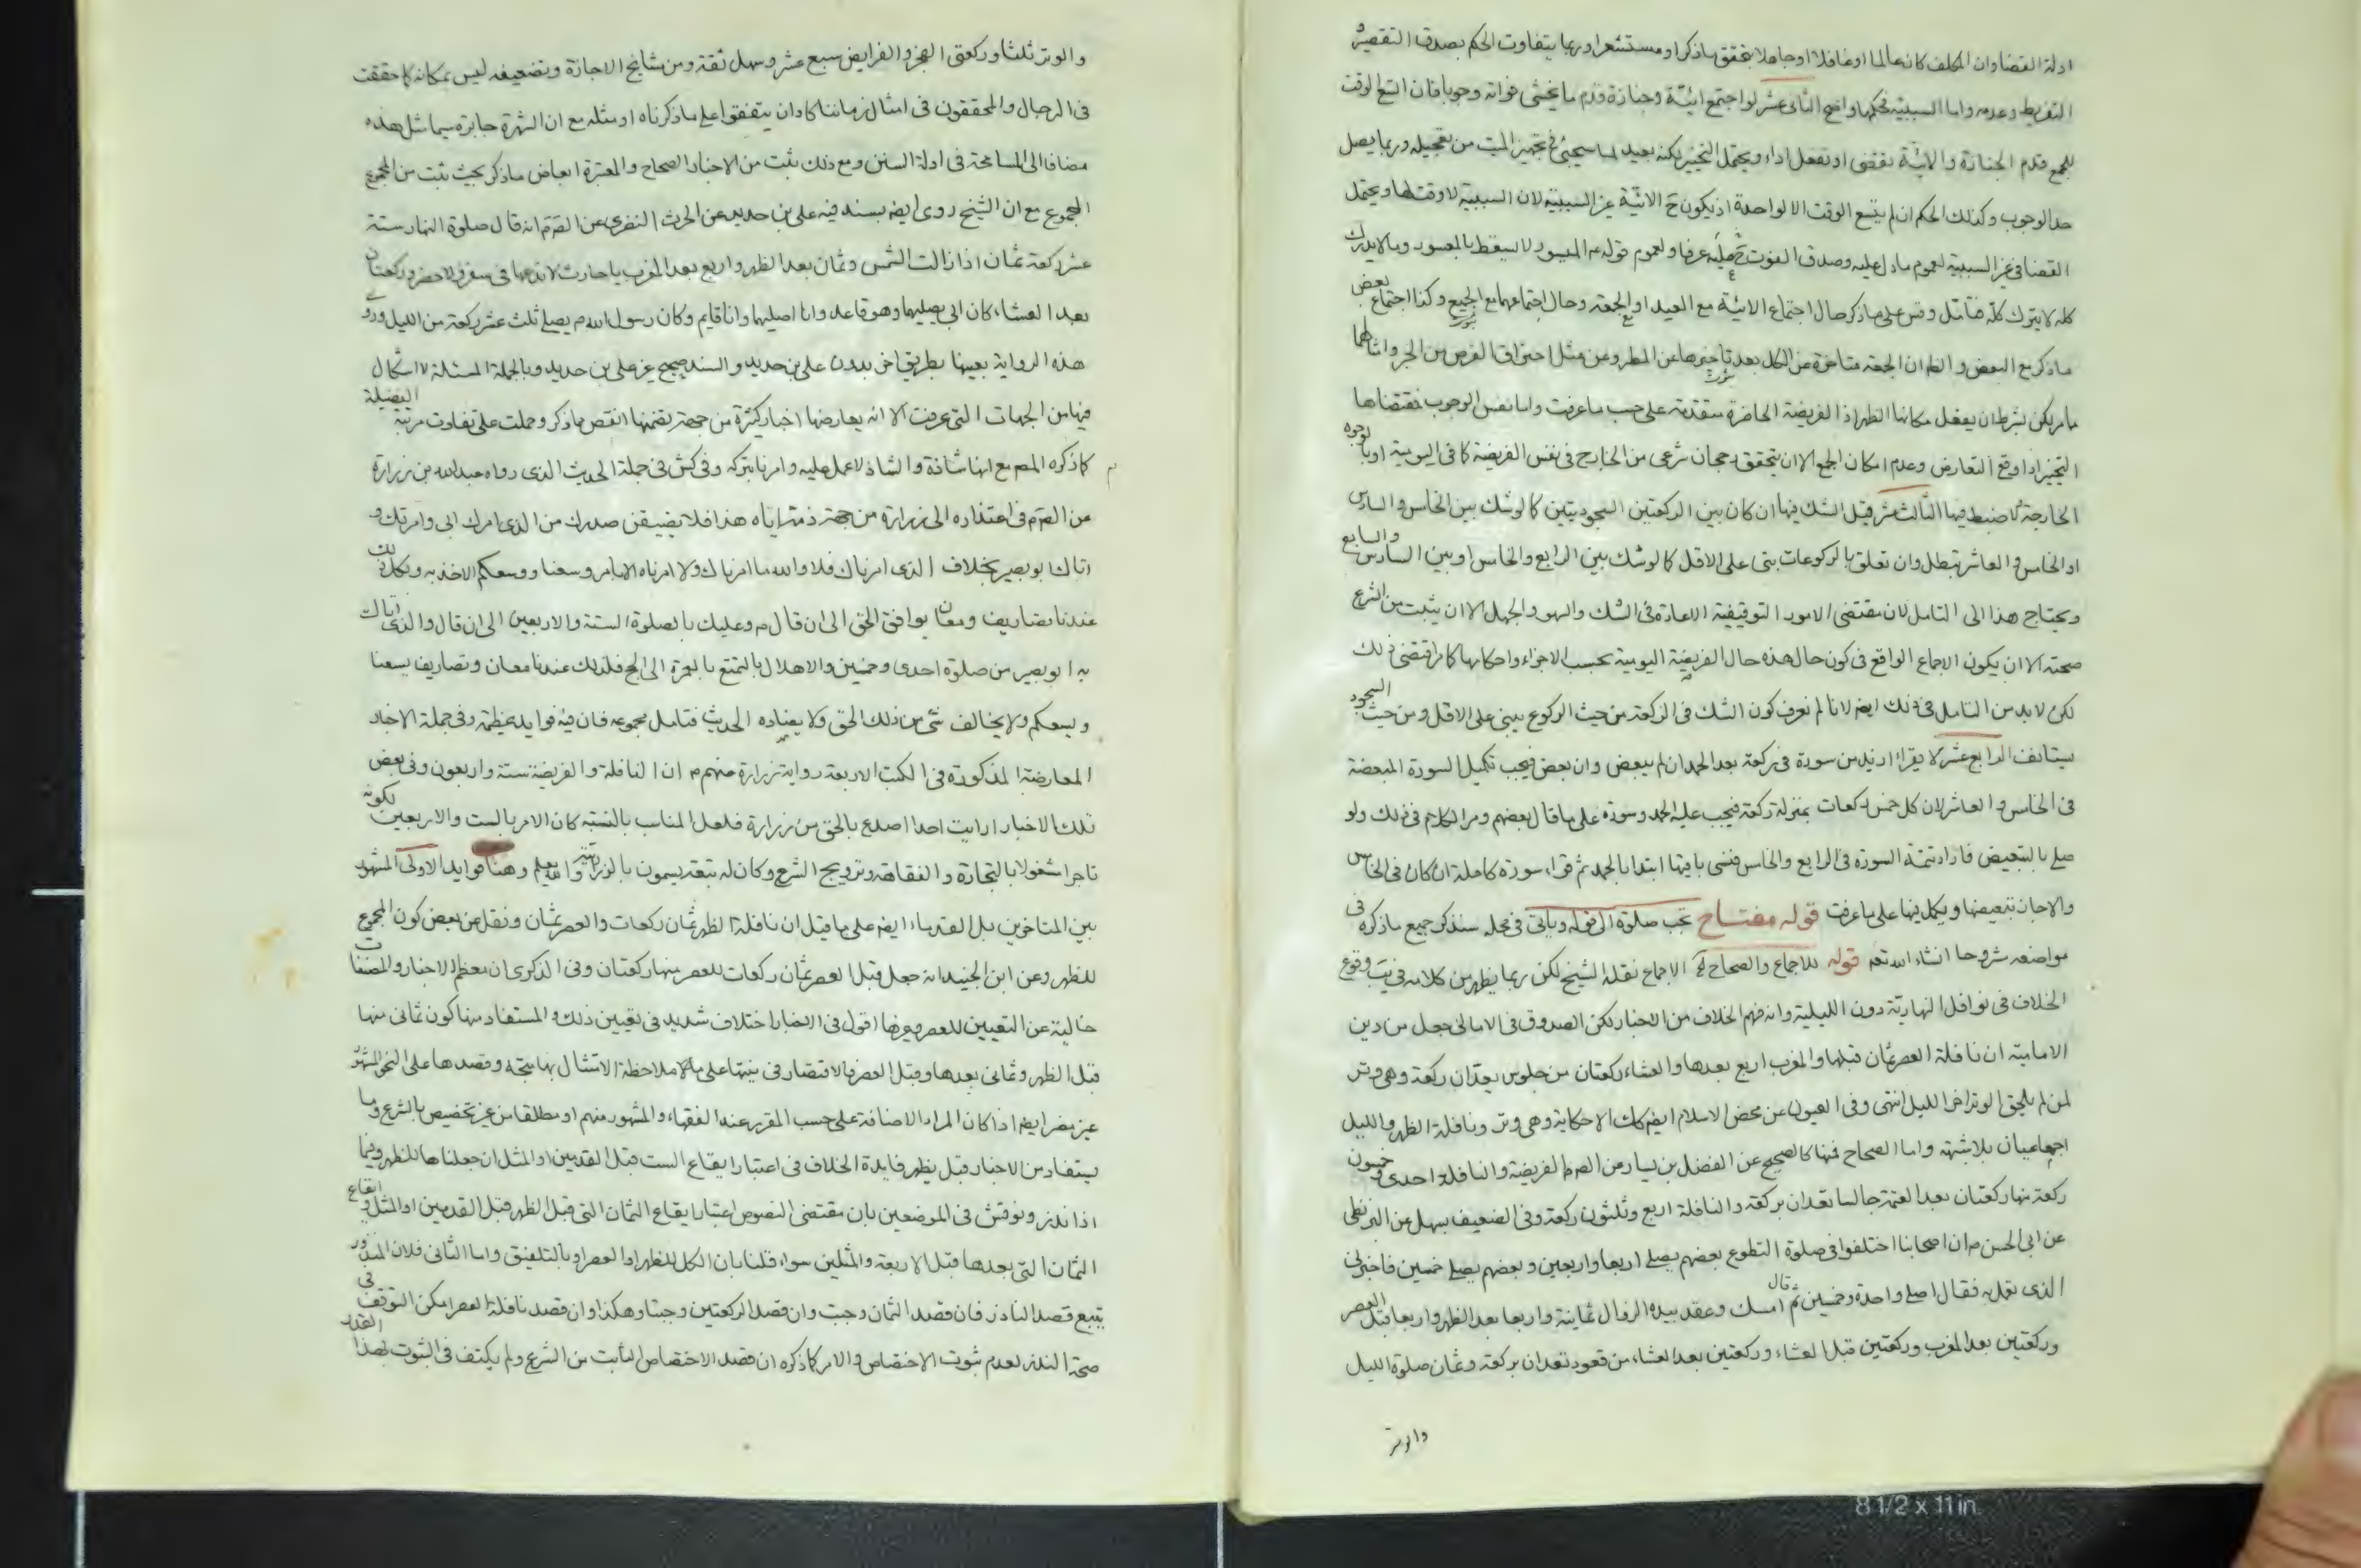 ادلة القضا وان المكلف كان عالما او غافلا او جاهلا بتحقق ماذكر او مستشعرا وربما يتفاوت الحكم بصدق التقصير و
التفريط وعدمه واما السببية فحكمها واضح الثانى عشر لو اجتمع اتية وجنازة قدم ما يخشى فواته وجوبا فان اتسع الوقت
للجمع قدم الجنازة والاتية تقضى او تفعل اداء ويحتمل التخيير لكنه بعيد لما سيجئ فى تجهيز الميت من تعجيله وربما يصل
حد الوجوب وكذلك الحكم ان لم يتسع الوقت الا لواحدة اذ يكون ح الاتية غير السببية لان السببية لا وقت لها ويحتمل
القضا فى غير السببية لعموم مادل عليه وصدق الفوت ح عرفا ولعموم قوله ع الميسور لا يسقط بالمعسور وما لا يدرك
كله لا يترك كله فتامل وقس على ماذكر حال اجتماع الاتية مع العيد او الجمعة وحال اجتماعهما مع الجميع وكذا اجتماع بعض
ماذكر مع البعض والظ ان الجمعة متاخرة عن الكل بعد تاخيرها عن المطر وعن مثل احتراق القرص من الحر وامثالهما
ما يمكن بشرط ان يفعل مكانها الظهر اذ الفريضة الحاضرة متقدمة على حسب ما عرفت واما نفس الوجوب فمقتضاها
التخيير اذا وقع التعارض وعدم امكان الجمع الا ان يتحقق رجحان شرعى من الخارج فى نفس الفريضة كما فى اليومية او بالوجوه
الخارجة لا ضبط فيها الثالث عشر قيل الشك فيها ان كان بين الركعتين السجوديتين كالوشك بين الخامس والسادس
او الخامس والعاشر تبطل وان تعلق بالركوعات بنى على الاقل كالوشك بين الرابع والخامس او بين السادس والسابع
ويحتاج هذا الى التامل لان مقتضى الامور التوقيفية الاعادة فى الشك والسهو والجهل الا ان يثبت من الشرع
صحته الا ان يكون الاجماع الواقع فى كون حال هذه حال الفريضة اليومية بحسب الاجزاء واحكامها كما مر اقتضى ذلك
لكن لابد من التامل فى ذلك ايضا لانا لم نعرف كون الشك فى الركعة من حيث الركوع يبنى على الاقل ومن حيث السجود
يستانف الرابع عشر لا يقرا ازيد من سورة فى ركعة بعد الحمد ان لم يبعض وان بعض فيجب تكميل السورة المبعضة
فى الخامس والعاشر لان كل خمس ركعات بمنزلة ركعة فيجب عليه الحمد وسورة على ما قال بعضهم ومر الكلام فى ذلك ولو
صلى بالتبعيض فاراد تتمة السورة فى الرابع والخامس فنسى باقيها ابتدا بالحمد ثم قراء سورة كاملة ان كان فى الخامس
والا جاز تبعيضها ويكمل فيها على ما عرفت قوله مفتاح تجب صلوة الى قوله وياتى فى محله سنذكر جميع ماذكره فى
مواضعه مشروحا انشاء الله تعه قوله للاجماع والصحاح الاجماع نقله الشيخ لكن ربما يظهر من كلامه فى يب وقوع
الخلاف فى نوافل النهارية دون الليلية وانه فهم الخلاف من الاخبار لكن الصدوق فى الامالى جعل من دين
الامامية ان نافلة العصر ثمان قبلها والمغرب اربع بعدها والعشاء ركعتان من جلوس يعدان ركعة وهى وتر
لمن لم يلحق الوتر اخر الليل انتهى وفى العيون عن محض الاسلام ايضا كك الا حكاية وهى وتر ونافلة الظهر والليل
اجماعيان بلا شبهة واما الصحاح فمنها كالصحيح عن الفضل بن يسار عن الص م الفريضة والنافلة احدى وخمسون
ركعة منها ركعتان بعد العتمة جالسا تعدان بركعة والنافلة اربع وثلثون ركعة وفى الضعيف بسهل عن البزنطى
عن ابى الحسن م ان اصحابنا اختلفوا فى صلوة التطوع بعضهم يصلى اربعا واربعين وبعضهم يصلى خمسين فاخبرنى
الذى تعمل به فقال اصلى واحدة وخمسين ثم قال امسك وعقد بيده الزوال ثمانية واربعا بعد الظهر واربعا قبل العصر
وركعتين بعد المغرب وركعتين قبل العشاء وركعتين بعد العشاء من قعود تعدان بركعة وثمان صلوة الليل
والوتر
والوتر ثلثا وركعتى الفجر والفرايض سبع عشر وسهل ثقة ومن مشايخ الاجازة وتضعيفه ليس بمكانه كما حققت
فى الرجال والمحققون فى امثال زماننا كاد ان يتفقوا على ماذكرناه او مثله مع ان الشهرة جابرة سيما مثل هذه
مضافا الى المسامحة فى ادلة السنن ومع ذلك يثبت من الاخبار الصحاح والمعتبرة ابعاض ماذكر بحيث يثبت من المجموع
المجموع مع ان الشيخ روى ايضا بسند فيه على بن حديد عن الحرث النضرى عن الص م انه قال صلوة النهار ستة
عشر ركعة ثمان اذا زالت الشمس وثمان بعد الظهر واربع بعد المغرب يا حارث لا تدعها فى سفر ولا حضر وركعتان
بعد العشاء كان ابى يصليهما وهو قاعد وانا اصليهما وانا قايم وكان رسول الله ص يصلى ثلث عشر ركعة من الليل وروى
هذه الرواية بعينها بطريق اخر بدون على بن حديد والسند صحيح غير على بن حديد وبالجملة المسئلة لا اشكال
فيها من الجهات التى عرفت الا انه يعارضها اخبار كثيرة من جهة تضمنها انقص مما ذكر وحملت على تفاوت مرتبة الفضيلة
كما ذكره المصـ مع انها شاذة والشاذ لا عمل عليه وامرنا بتركه وفى كش فى جملة الحديث الذى رواه عبد الله بن زرارة
عن الص م فى اعتذاره الى زرارة من جهة ذمته اياه هذا فلا يضيقن صدرك من الذى امرك ابى وامرتك و
اتاك ابو بصير بخلاف الذى امرناك فلا والله ما امرناك ولا امرناه الا بامر وسعنا ووسعكم الاخذ به ولكل ذلك
عندنا تصاريف ومعان يوافق الحق الى ان قال م وعليك بالصلوة الستة والاربعين الى ان قال والذى اتاك
به ابو بصير من صلوة احدى وخمسين والاهلال بالتمتع بالعمرة الى الحج فلذلك عندنا معان وتصاريف يسعنا
ويسعكم ولا يخالف شئ من ذلك الحق ولا يضاده الحديث فتامل مجموعه فان فيه فوايد عظيمة وفى جملة الاخبار
المعارضة المذكورة فى الكتب الاربعة رواية زرارة عنهم م ان النافلة والفريضة ستة واربعون وفى بعض
تلك الاخبار ارايت احدا اصدع بالحق من زرارة فلعل المناسب بالنسبة كان الامر بالست والاربعين لكونه
تاجرا مشغولا بالتجارة والفقاهة وترويج الشرع وكان له تبعة يسمون بالزرارية والله يعلم وهنا فوايد الاولى المشهور
بين المتاخرين بل القدماء ايضا على ما قيل ان نافلة الظهر ثمان ركعات والعصر ثمان ونقل عن بعض كون المجموع
للظهر وعن ابن الجنيد انه جعل قبل العصر ثمان ركعات للعصر منها ركعتان وفى الذكرى ان معظم الاخبار والمصنفات
خالية عن التعيين للعصر وغيرها اقول فى الاخبار اختلاف شديد فى تعيين ذلك والمستفاد منها كون ثمانى منها
قبل الظهر وثمانى بعدها وقبل العصر فالاقتصار فى نيتها على ملاحظة الامتثال بها متجه وقصدها على النحو المشهور
غير مضر ايضا اذا كان المراد الاضافة على حسب المقرر عند الفقهاء والمشهور منهم او مطلقا من غير تخصيص بالشرع وما
يستفاد من الاخبار قيل يظهر فايدة الخلاف فى اعتبار ايقاع الست قبل القدمين او المثل ان جعلناها للظهر وفيما
اذا نذر ونوقش فى الموضعين بان مقتضى النصوص اعتبار ايقاع الثمان التى قبل الظهر قبل القدمين او المثل وايقاع
الثمان التى بعدها قبل الاربعة والمثلين سواء قلنا بان الكل للظهر او العصر او بالتلفيق واما الثانى فلان المنذور
يتبع قصد الناذر فان قصد الثمان وجبت وان قصد الركعتين وجبتا وهكذا وان قصد نافلة العصر امكن التوقف فى
صحة النذر لعدم ثبوت الاختصاص والامر كما ذكره ان قصد الاختصاص الثابت من الشرع ولم يكتف فى الثبوت بهذا القدر